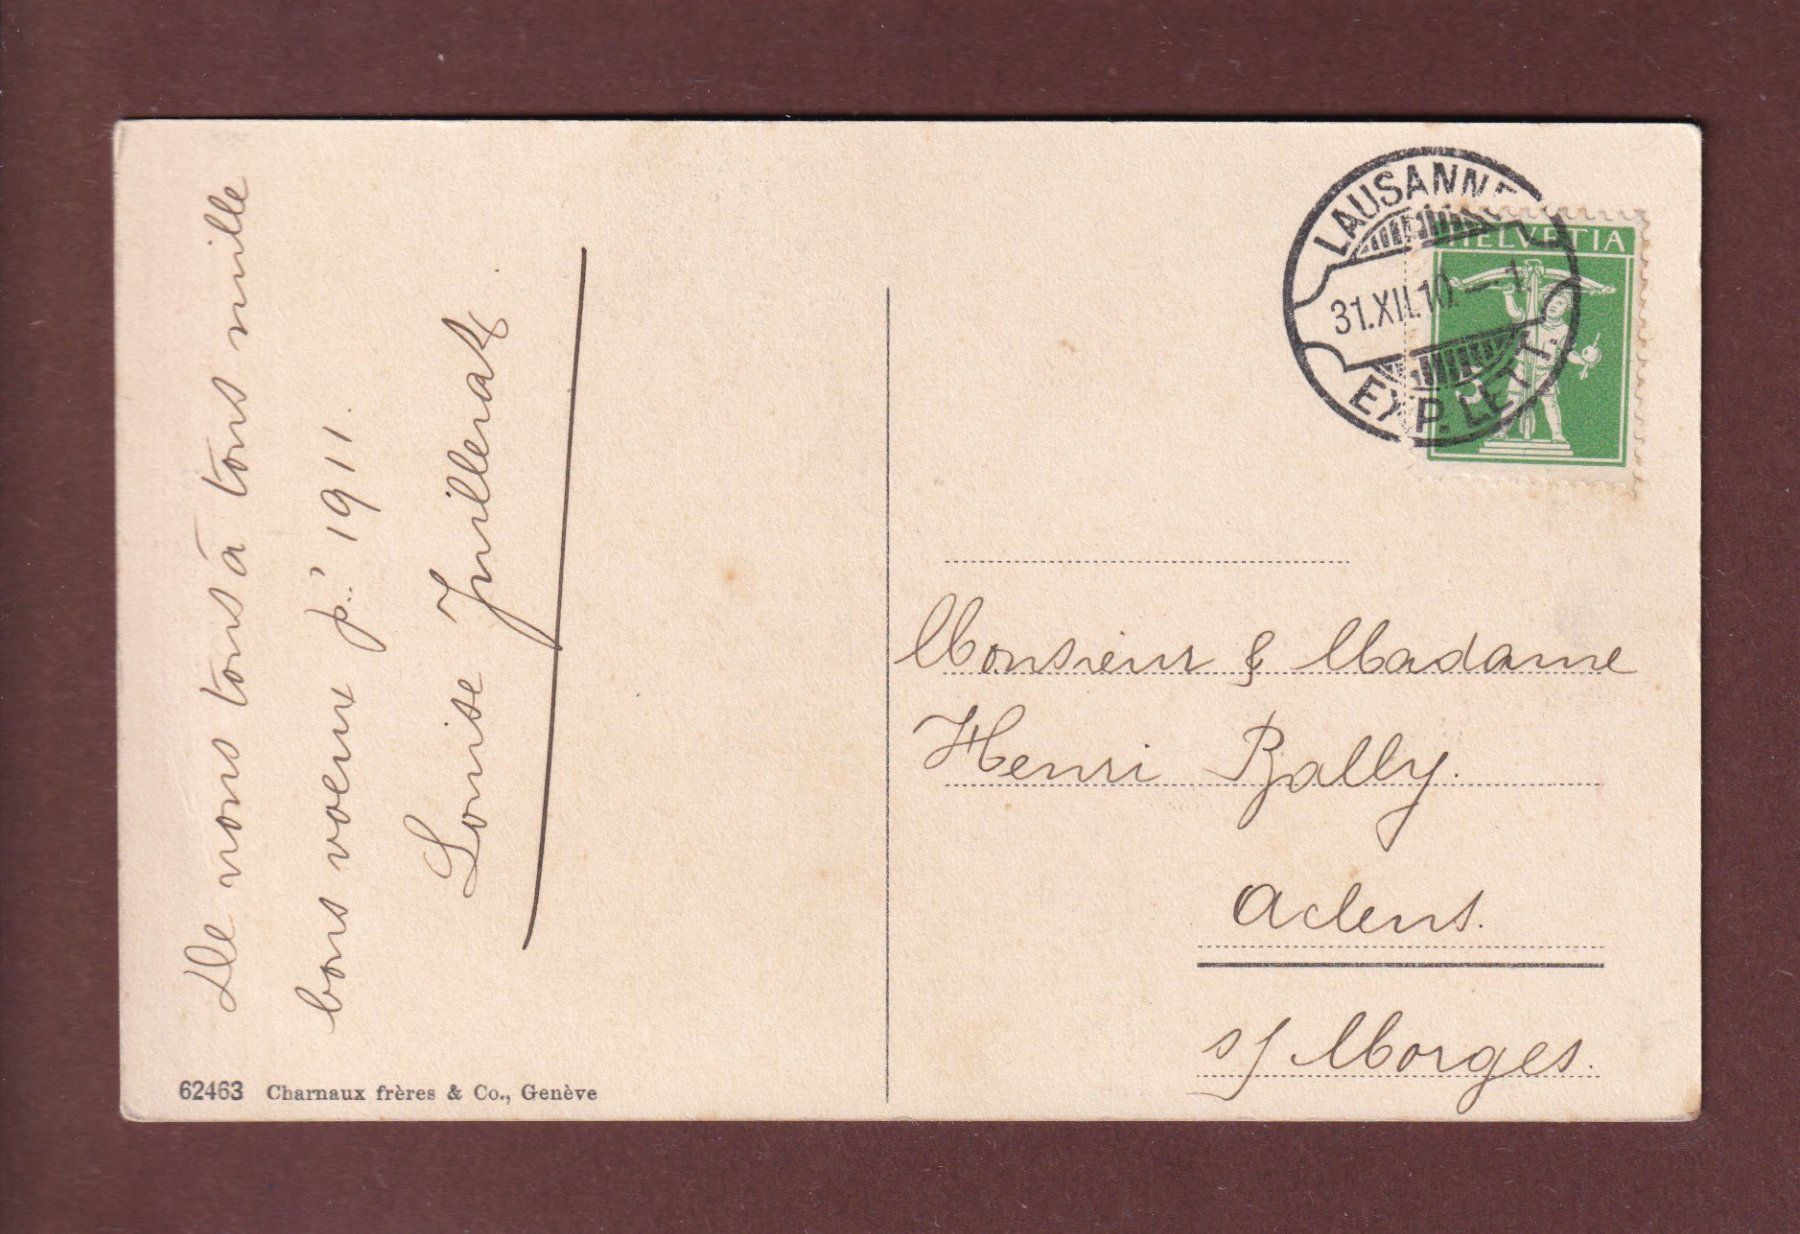 De nous tous à tous mille
bons voeux p.' 1911.
Louise Juillerat
62463 Charnaux frères & Co., Genève
LAUSANNE
31.XII.10.–1.
EXP. LETT.
HELVETIA
Monsieur & Madame
Henri Bally.
Aclens.
s/ Morges.